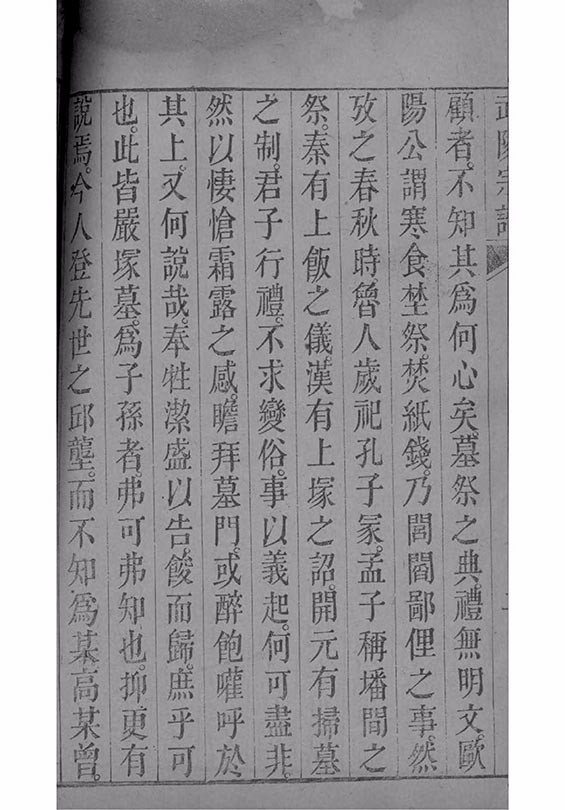 顧者。不知其爲何心矣。墓祭之典。禮無明文。歐
陽公謂寒食埜祭。焚紙錢。乃閭閻鄙俚之事。然
攷之春秋時。魯人歲祀孔子冢。孟子稱墦間之
祭。秦有上飯之儀。漢有上塚之詔。開元有掃墓
之制。君子行禮。不求變俗。事以義起。何可盡非。
然以悽愴霜露之感。瞻拜墓門。或醉飽嚾呼於
其上。又何說哉。奉牲潔盛以告。餕而歸。庶乎可
也。此皆嚴塚墓。爲子孫者。弗可弗知也。抑更有
說焉。今人登先世之邱壟。而不知爲某高某曾。